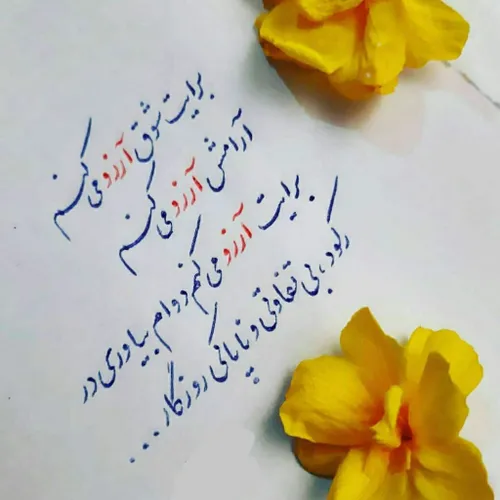 برایت شوق آرزو می کنم
آرامش آرزو می کنم
برایت آرزو می کنم دوام بیاوری در
رکود، بی تفاوتی و ناپاکی روزگار...